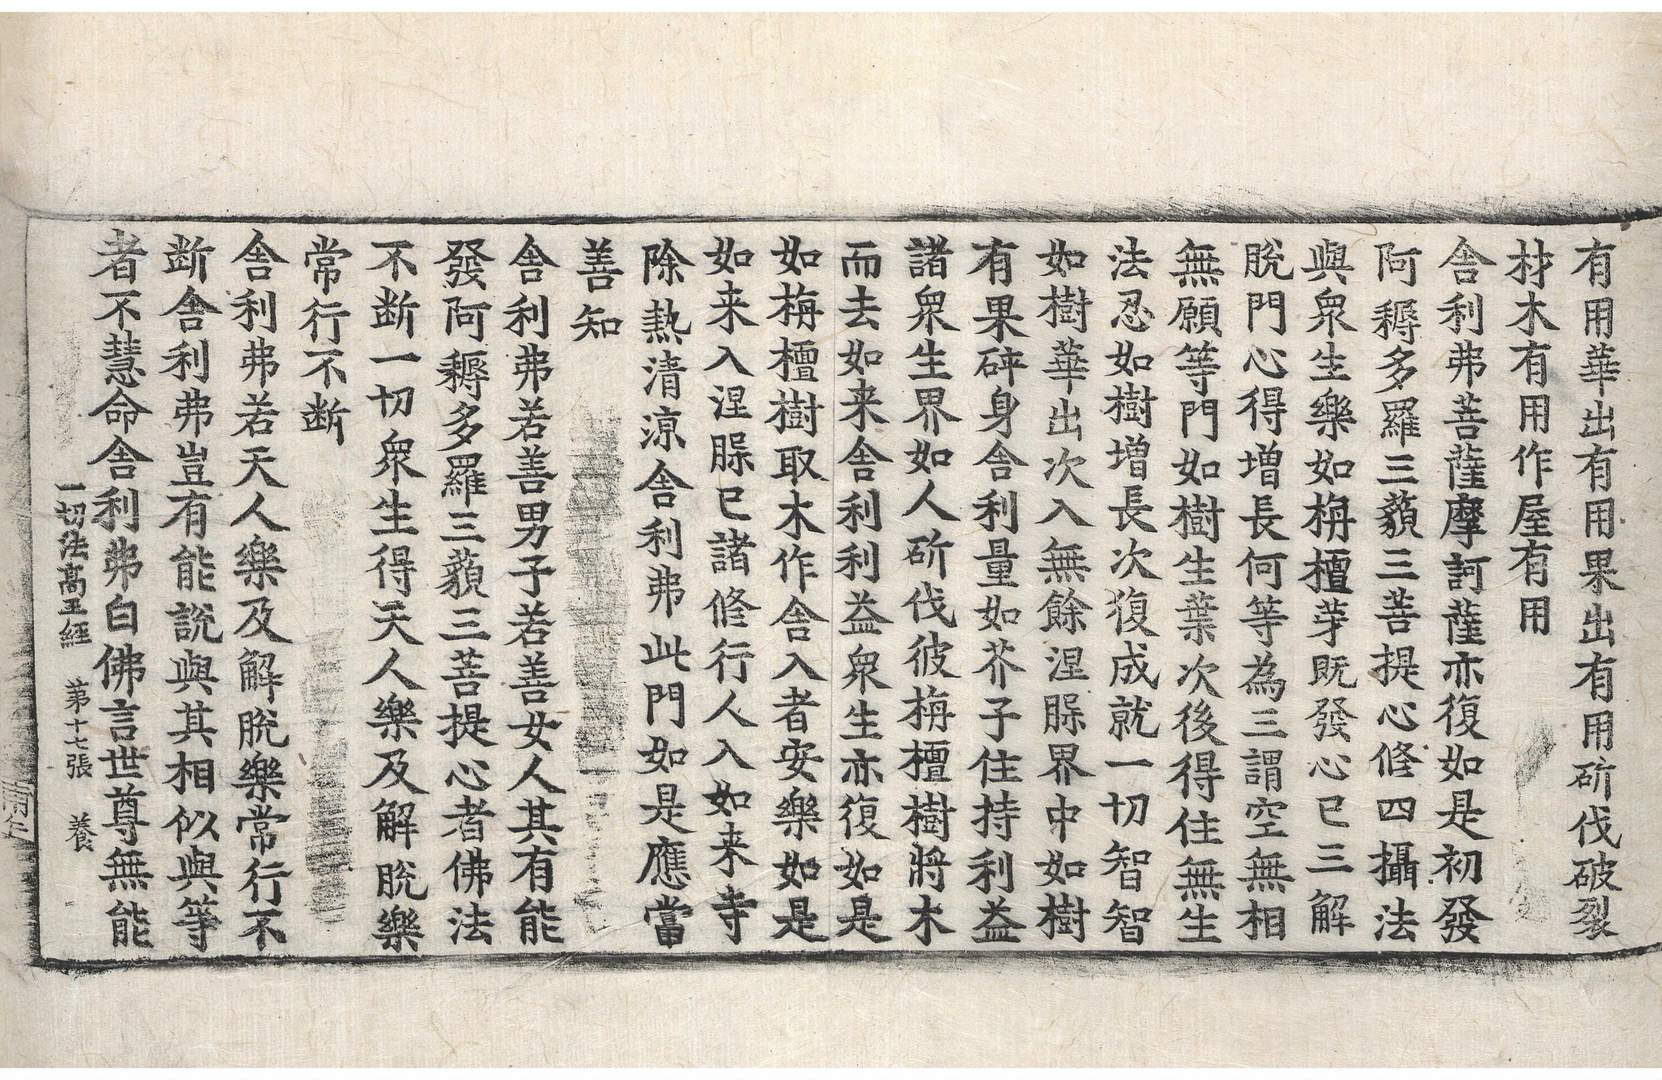 有用華出有用果出有用斫伐破裂
材木有用作屋有用
舎利弗菩薩摩訶薩亦復如是初發
阿耨多羅三藐三菩提心修四攝法
與衆生樂如栴檀芽既發心已三解
脫門心得増長何等為三謂空無相
無願等門如樹生葉次後得住無生
法忍如樹増長次復成就一切智智
如樹華出次入無餘涅槃界中如樹
有果碎身舎利量如芥子住持利益
諸衆生界如人斫伐彼栴檀樹將木
而去如来舎利利益衆生亦復如是
如栴檀樹取木作舎入者安樂如是
如来入涅槃已諸修行人入如来寺
除熱清涼舎利弗此門如是應當
善知
舎利弗若善男子若善女人其有能
發阿耨多羅三藐三菩提心者佛法
不断一切衆生得天人樂及解脫樂
常行不断
舎利弗若天人樂及解脫樂常行不
断舎利弗豈有能說與其相似與等
者不慧命舎利弗白佛言世尊無能
一切法高王經 第十七張 養